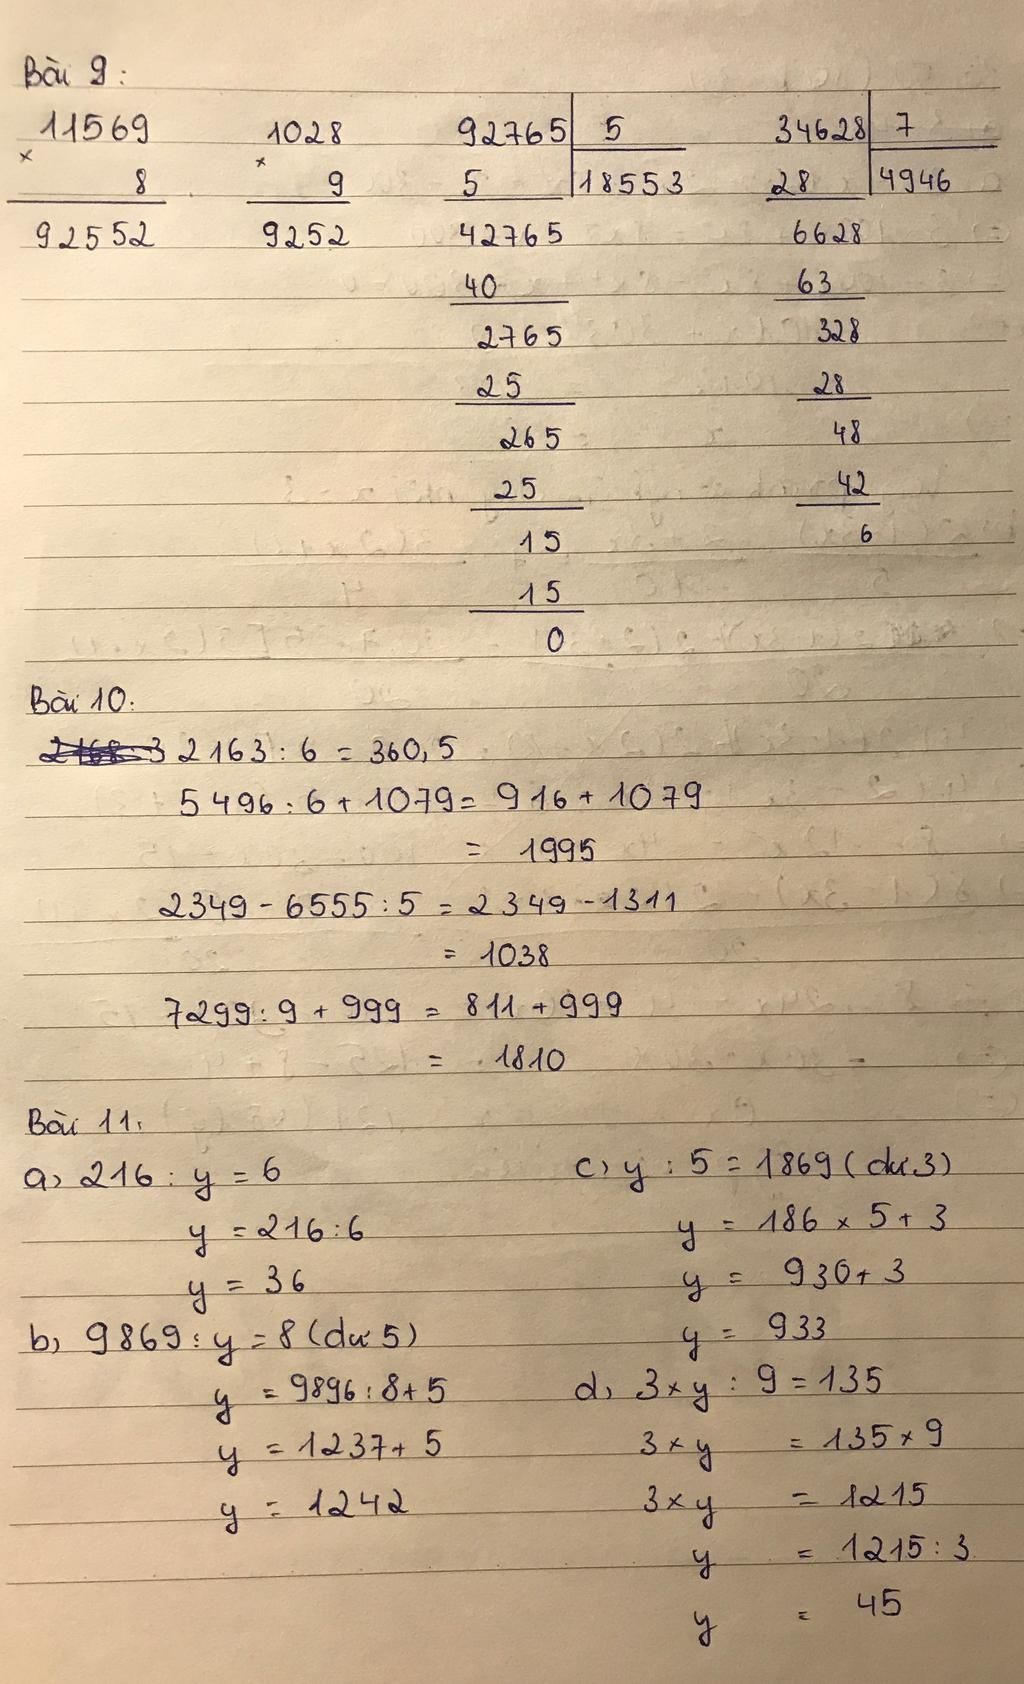 Bài 9:
11569
×
8
92552
1028
×
9
9252
92765 5
5 18553
42765
40
2765
25
265
25
15
15
0
34628 7
28 4946
6628
63
328
28
48
42
6
Bài 10:
2163 : 6 = 360,5
5496 : 6 + 1079 = 916 + 1079
= 1995
2349 - 6555 : 5 = 2349 - 1311
= 1038
7299 : 9 + 999 = 811 + 999
= 1810
Bài 11:
a, 216 : y = 6
y = 216 : 6
y = 36
b, 9869 : y = 8 (dư 5)
y = 9896 : 8 + 5
y = 1237 + 5
y = 1242
c, y : 5 = 1869 (dư 3)
y = 186 × 5 + 3
y = 930 + 3
y = 933
d, 3 × y : 9 = 135
3 × y = 135 × 9
3 × y = 1215
y = 1215 : 3
y = 45